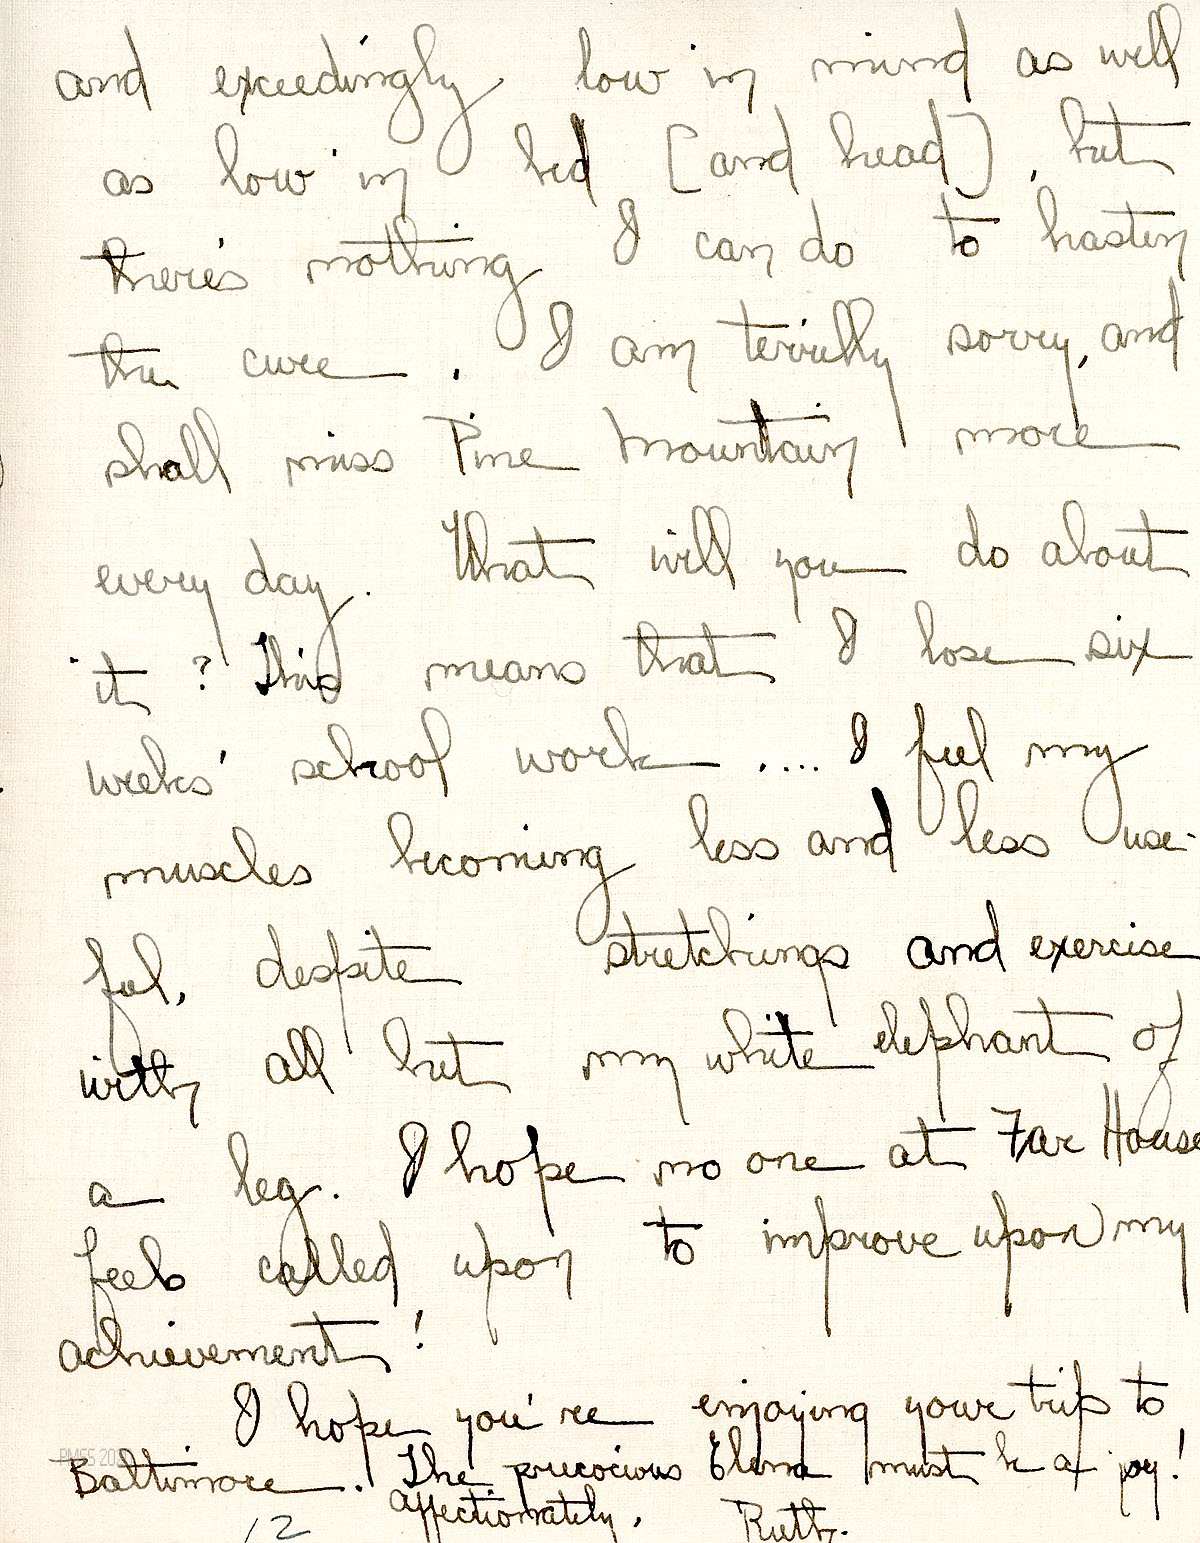 and exceedingly low in mind as well
as low in bed [and head], but
there's nothing I can do to hasten
the cure. I am terribly sorry, and
shall miss Pine Mountain more
every day. What will you do about
it? This means that I lose six
weeks' school work.... I feel my
muscles becoming less and less use-
ful, despite stretchings and exercise
with all but my white elephant of
a leg. I hope no one at Far House
feels called upon to improve upon my
achievement!
I hope you're enjoying your trip to
Baltimore. The precocious Elena must be a joy!
affectionately,
Ruth.
12